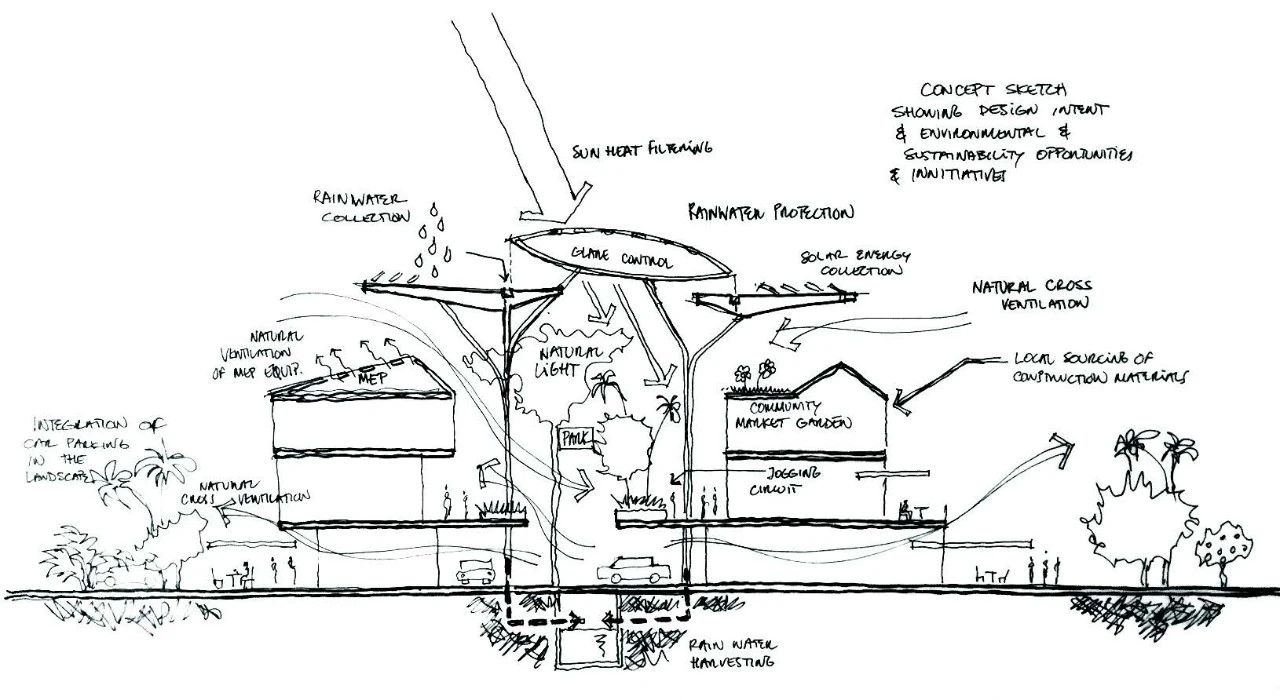 CONCEPT SKETCH
SHOWING DESIGN INTENT
& ENVIRONMENTAL &
SUSTAINABILITY OPPORTUNITIES
& INNITIATIVES
SUN HEAT FILTERING
RAINWATER
COLLECTION
RAINWATER PROTECTION
GLARE CONTROL
SOLAR ENERGY
COLLECTION
NATURAL CROSS
VENTILATION
NATURAL
VENTILATION
OF MEP EQUIP.
MEP
NATURAL
LIGHT
LOCAL SOURCING OF
CONSTRUCTION MATERIALS
COMMUNITY
MARKET GARDEN
INTEGRATION OF
CAR PARKING
IN THE
LANDSCAPE
PARK
JOGGING
CIRCUIT
NATURAL
CROSS VENTILATION
RAIN WATER
HARVESTING